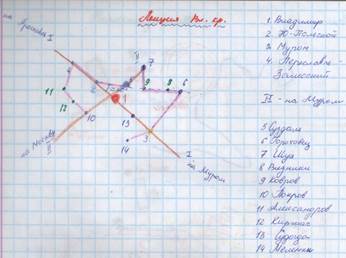 на Ярославль I
Лекция Вл. гр.
II
7
4
2
1
9
8
6
11
12
10
13
14
3
5
на Москву
II
I
на Муром
1 Владимир
2 Ю-Польской
3 Муром
4 Переславль-
Залесский
II - на Муром
5 Суздаль
6 Гороховец
7 Шуя
8 Вязники
9 Ковров
10 Покров
11 Александров
12 Киржач
13 Судогда
14 Меленки